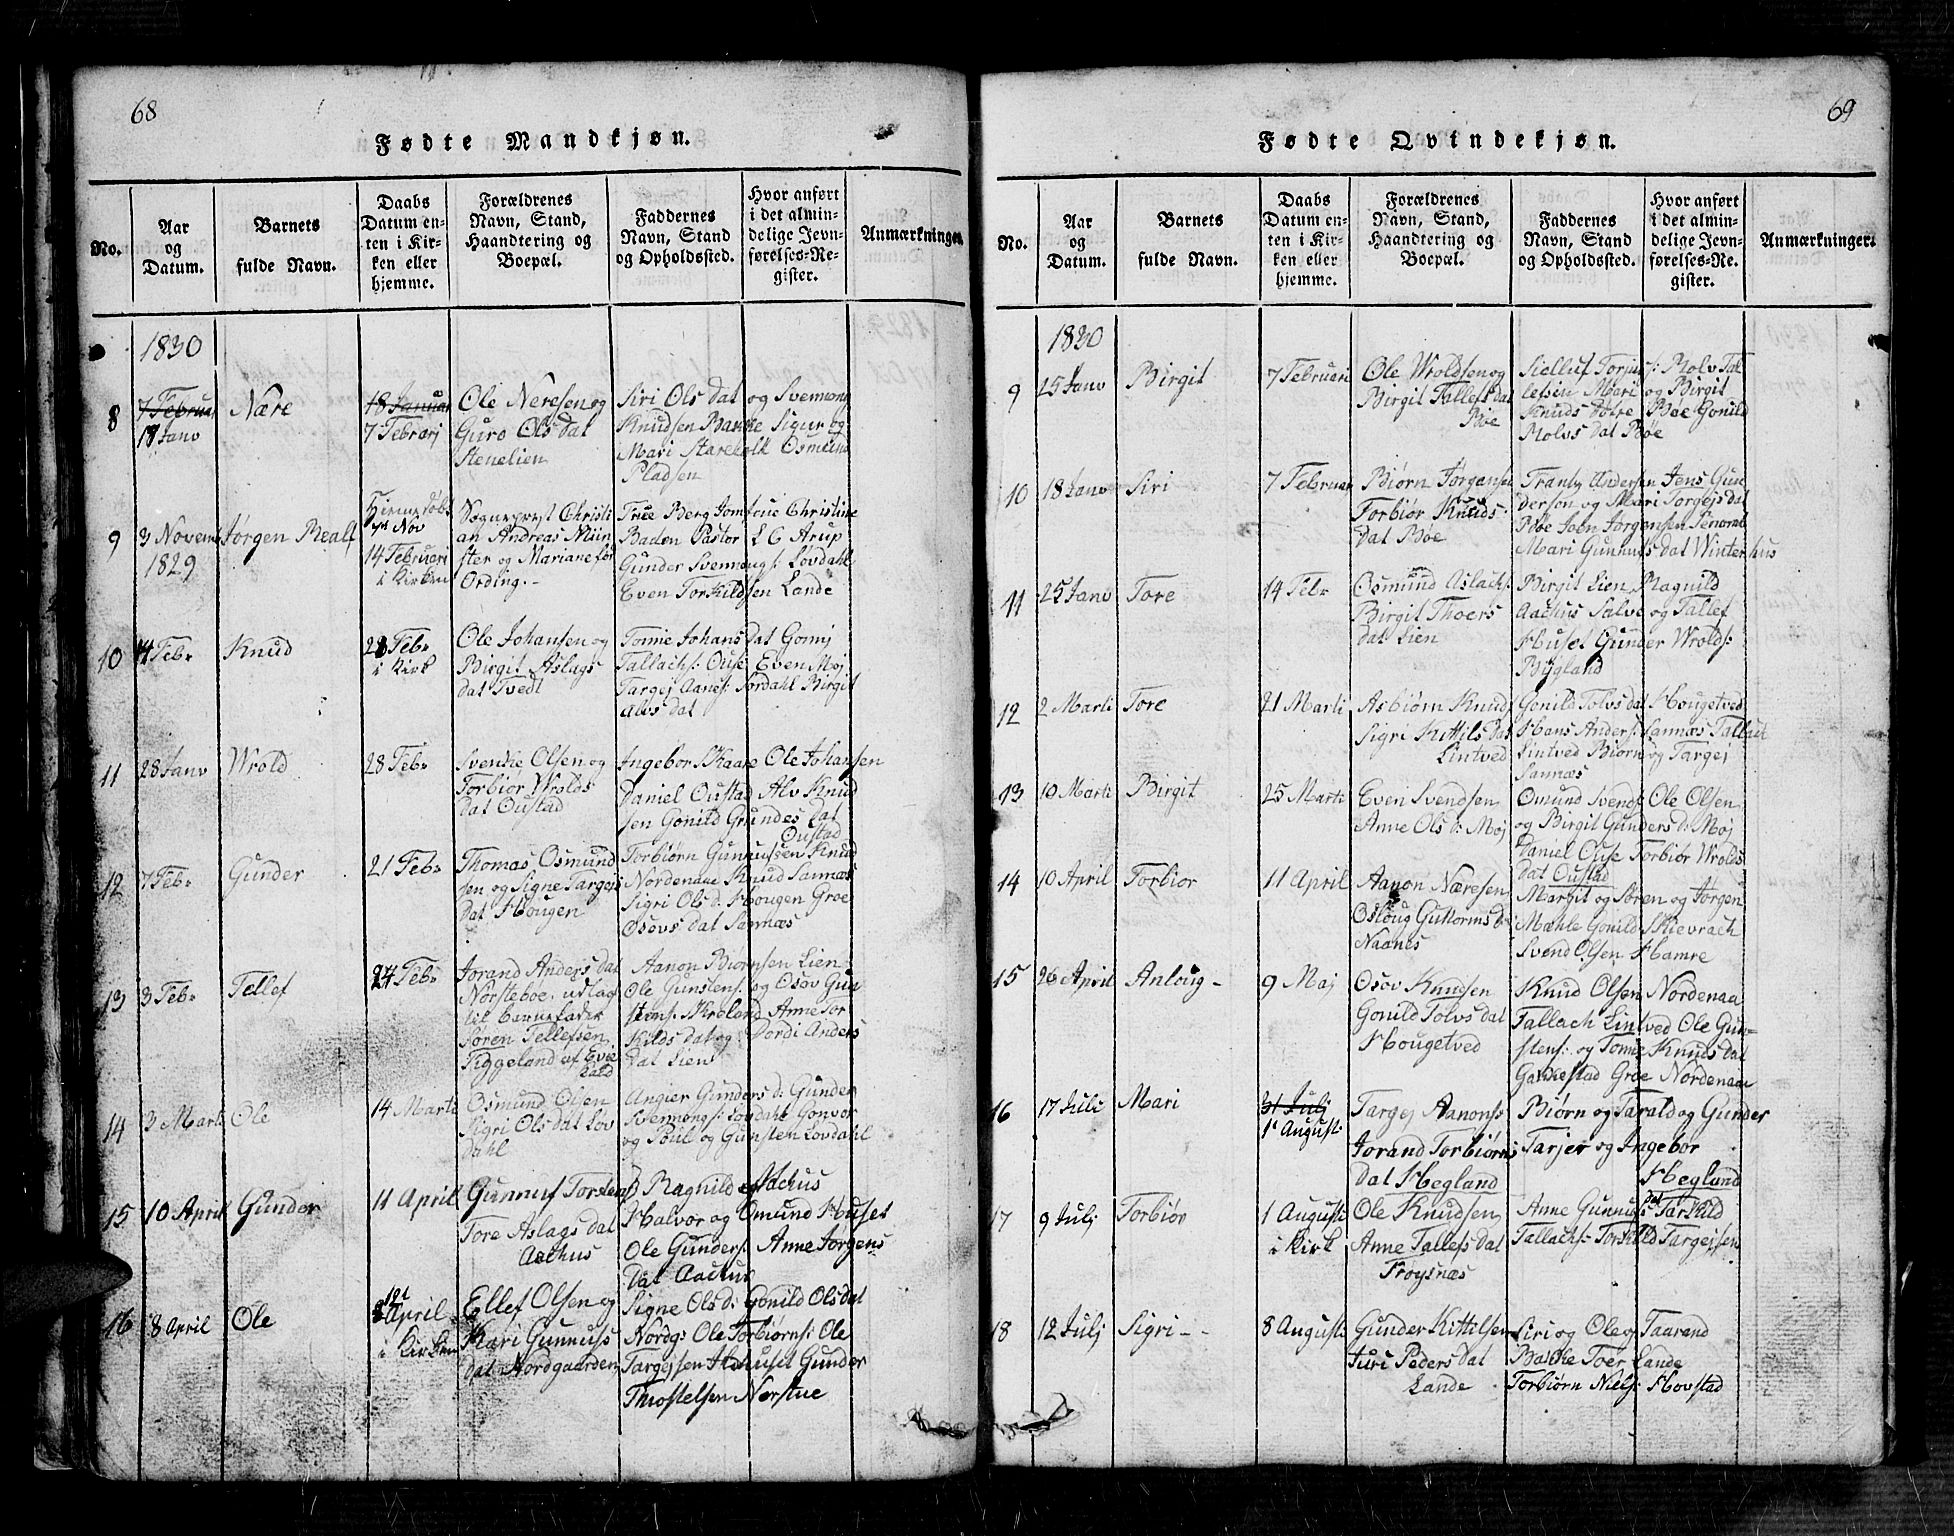 68
Fødte Mandkjøn.
No.
Aar
og
Datum.
Barnets
fulde Navn.
Daabs
Datum en-
ten i Kir-
ken eller
hjemme.
Forældrenes
Navn, Stand,
Haandtering og
Boepæl.
Faddernes
Navn, Stand
og Opholdssted.
Hvor anført
i det almin-
delige Jevn-
førelses-Re-
gister.
Anmærkninger.
1830
8
7 Februar
18 Janv
Nære
18 Januar
7 Februarj
Ole Neresen og
Guro Ols dat
Stenelien
Siri Ols dat og Svennong
Knudsen Banke Sigur og
Mari Osmund
Pladsen
9
3 Novemb
1829
Jørgen
Hjemmedøbt
Nov
14 Februari
i Kirken
Sogneprest Christi
an Andreas Mün
ster og Mariane før
Ording.-
Frue Berg Jomfrue Christine
Baden Pastor L C Arup
Gunder Svennongs: Løvdahl
Even Torkildsen Lande
10
14 Febr
Knud
28 Febr
i Kirk
Ole Johansen og
Birgit Aslags
dat Tvedt
Tonne Johans dat Gonnj
Tallachs: Ouse Even Moj
Targej Aanes: Sordahl Birgit
Alvs dat
11
28 Janv
Wrold
28 Febr
Svenke Olsen og
Torbiør Wrolds
dat Oustad
Ingebor Skaare Ole Johansen
Daniel Oustad Alv Knud
sen Gonild Grundes dat
Oustad
12
7 Febr
Gunder
21 Febr
Thomas Osmund
sen og Signe Targejs
dat Hougen
Torbiørn Gunnufsen Knud
Nordenaae Knud Sannæs
Sigri Ols d: Hougen Groe
Osovs dat Sannæs
13
3 Febr
Tellef
27 Febr
Jorand Anders dat
Norstebøe, udlag
til barnefader
Søren Tellefsen
Figgeland af Evie
Land
Aanon Biørnsen Lien
Ole Gunstens: og Osov Gun
stens: Skroland Anne Tor
kilds dat og Dordi Anders
dat Lien
14
3 Marti
Ole
14 Marti
Osmund Olsen
Sigri Ols dat Løv
dahl
Angier Gunders d: Gunder
Svennongs: Løvdahl Gonvor
og Poul og Gunsten Løvdahl
15
10 April
Gunder
11 April
Gunnuf Torsten
Tore Aslags dat
Aachus
Ragnild Aachus
Halvor og Omund Huset
Ole Gunders: Anne Jørgens
dat Aachus
16
8 April
Ole
April
i Kirken
Ellef Olsen og
Kari Gunnufs
dat Nordgaarden
Signe Ols d: Gonild Ols dat
Nordgs Ole Torbiørns: Ole
Targejsen Gunder
Throstelsen Norstue
69
Fødte Qvindekjøn.
No.
Aar
og
Datum.
Barnets
fulde Navn.
Daabs
Datum en-
ten i Kir-
ken eller
hjemme.
Forældrenes
Navn, Stand,
Haandtering og
Boepæl.
Faddernes
Navn, Stand
og Opholdssted.
Hvor anført
i det almin-
delige Jevn-
førelses-Re-
gister.
Anmærkninger.
1830
9
25 Janv
Birgit
7 Februari
Ole Wroldsen og
Birgit Tallefs dat
Bøe
Sielluf Torjus: Molv Tal
lefsen Mari og Birgit
Knuds døtre Bøe Gonild
Molvs dat Bøe
10
18 Janv
Siri
7 Februari
Biørn Jørgensen
Torbiør Knuds:
dat Bøe
Frants Andersen Jens Gun
dersen og Mari Torgejs dat
Bøe John Jørgensen
Mari Gunnufs dat Winterhus
11
25 Janv
Tore
14 Febr
Osmund Aslachs:
Birgit Thoers
dat Lien
Birgit Lien Ragnild
Aachus Salve og Tallef
Huset Gunder Wrolds:
Bygland
12
2 Marti
Tore
21 Marti
Asbiørn Knuds
Sigri Kittils dat
Lintved
Gonild Tolvs dat Hougetved
Hans Anders: Sannæs Tallach
Lintved Biørn og Targej
Sannæs
13
10 Marti
Birgit
25 Marti
Even Svendsen
Anne Ols d: Moj
Omund Svends: Ole Olsen
og Birgit Gunders d: Moj
Daniel Ouse Torbiør Wrolds
dat Oustad
14
10 April
Torbior
11 April
Aanon Næresen
Osloug Guttorms d:
Naanes
Margit og Søren og Jørgen
Mæhle Gonild Skievrach
Svend Olsen Hamre
15
26 April
Anloug -
9 Maj
Osov Knudsen
Gonild Tolvs dat
Hougetved
Knud Olsen Nordenaa
Tallach Lintved Ole Gun-
stens: og Tonne Knuds dat
Gakkestad Groe Nordenaa
16
17 Juli
Mari
31 Julj
1 August:
Targej Aanons:
Jorand Torbiørns
dat Hegland
Biørn og Tarald og Gunder
Tarjer og Ingebor
Hegland
17
9 Julj
Torbiør
1 August:
i Kirk
Ole Knudsen
Anne Tallefs dat
Frøysnæs
Anne Gunnufs dat Tarkild
Tallachs: Torkild Targejsen
18
12 Julj
Sigri - -
8 August:
Gunder Kittilsen
Juri Peders dat
Lande
Siri og Ole og Taarand
Bakke Toer Lande
Torbiørn Niels: Hovstad